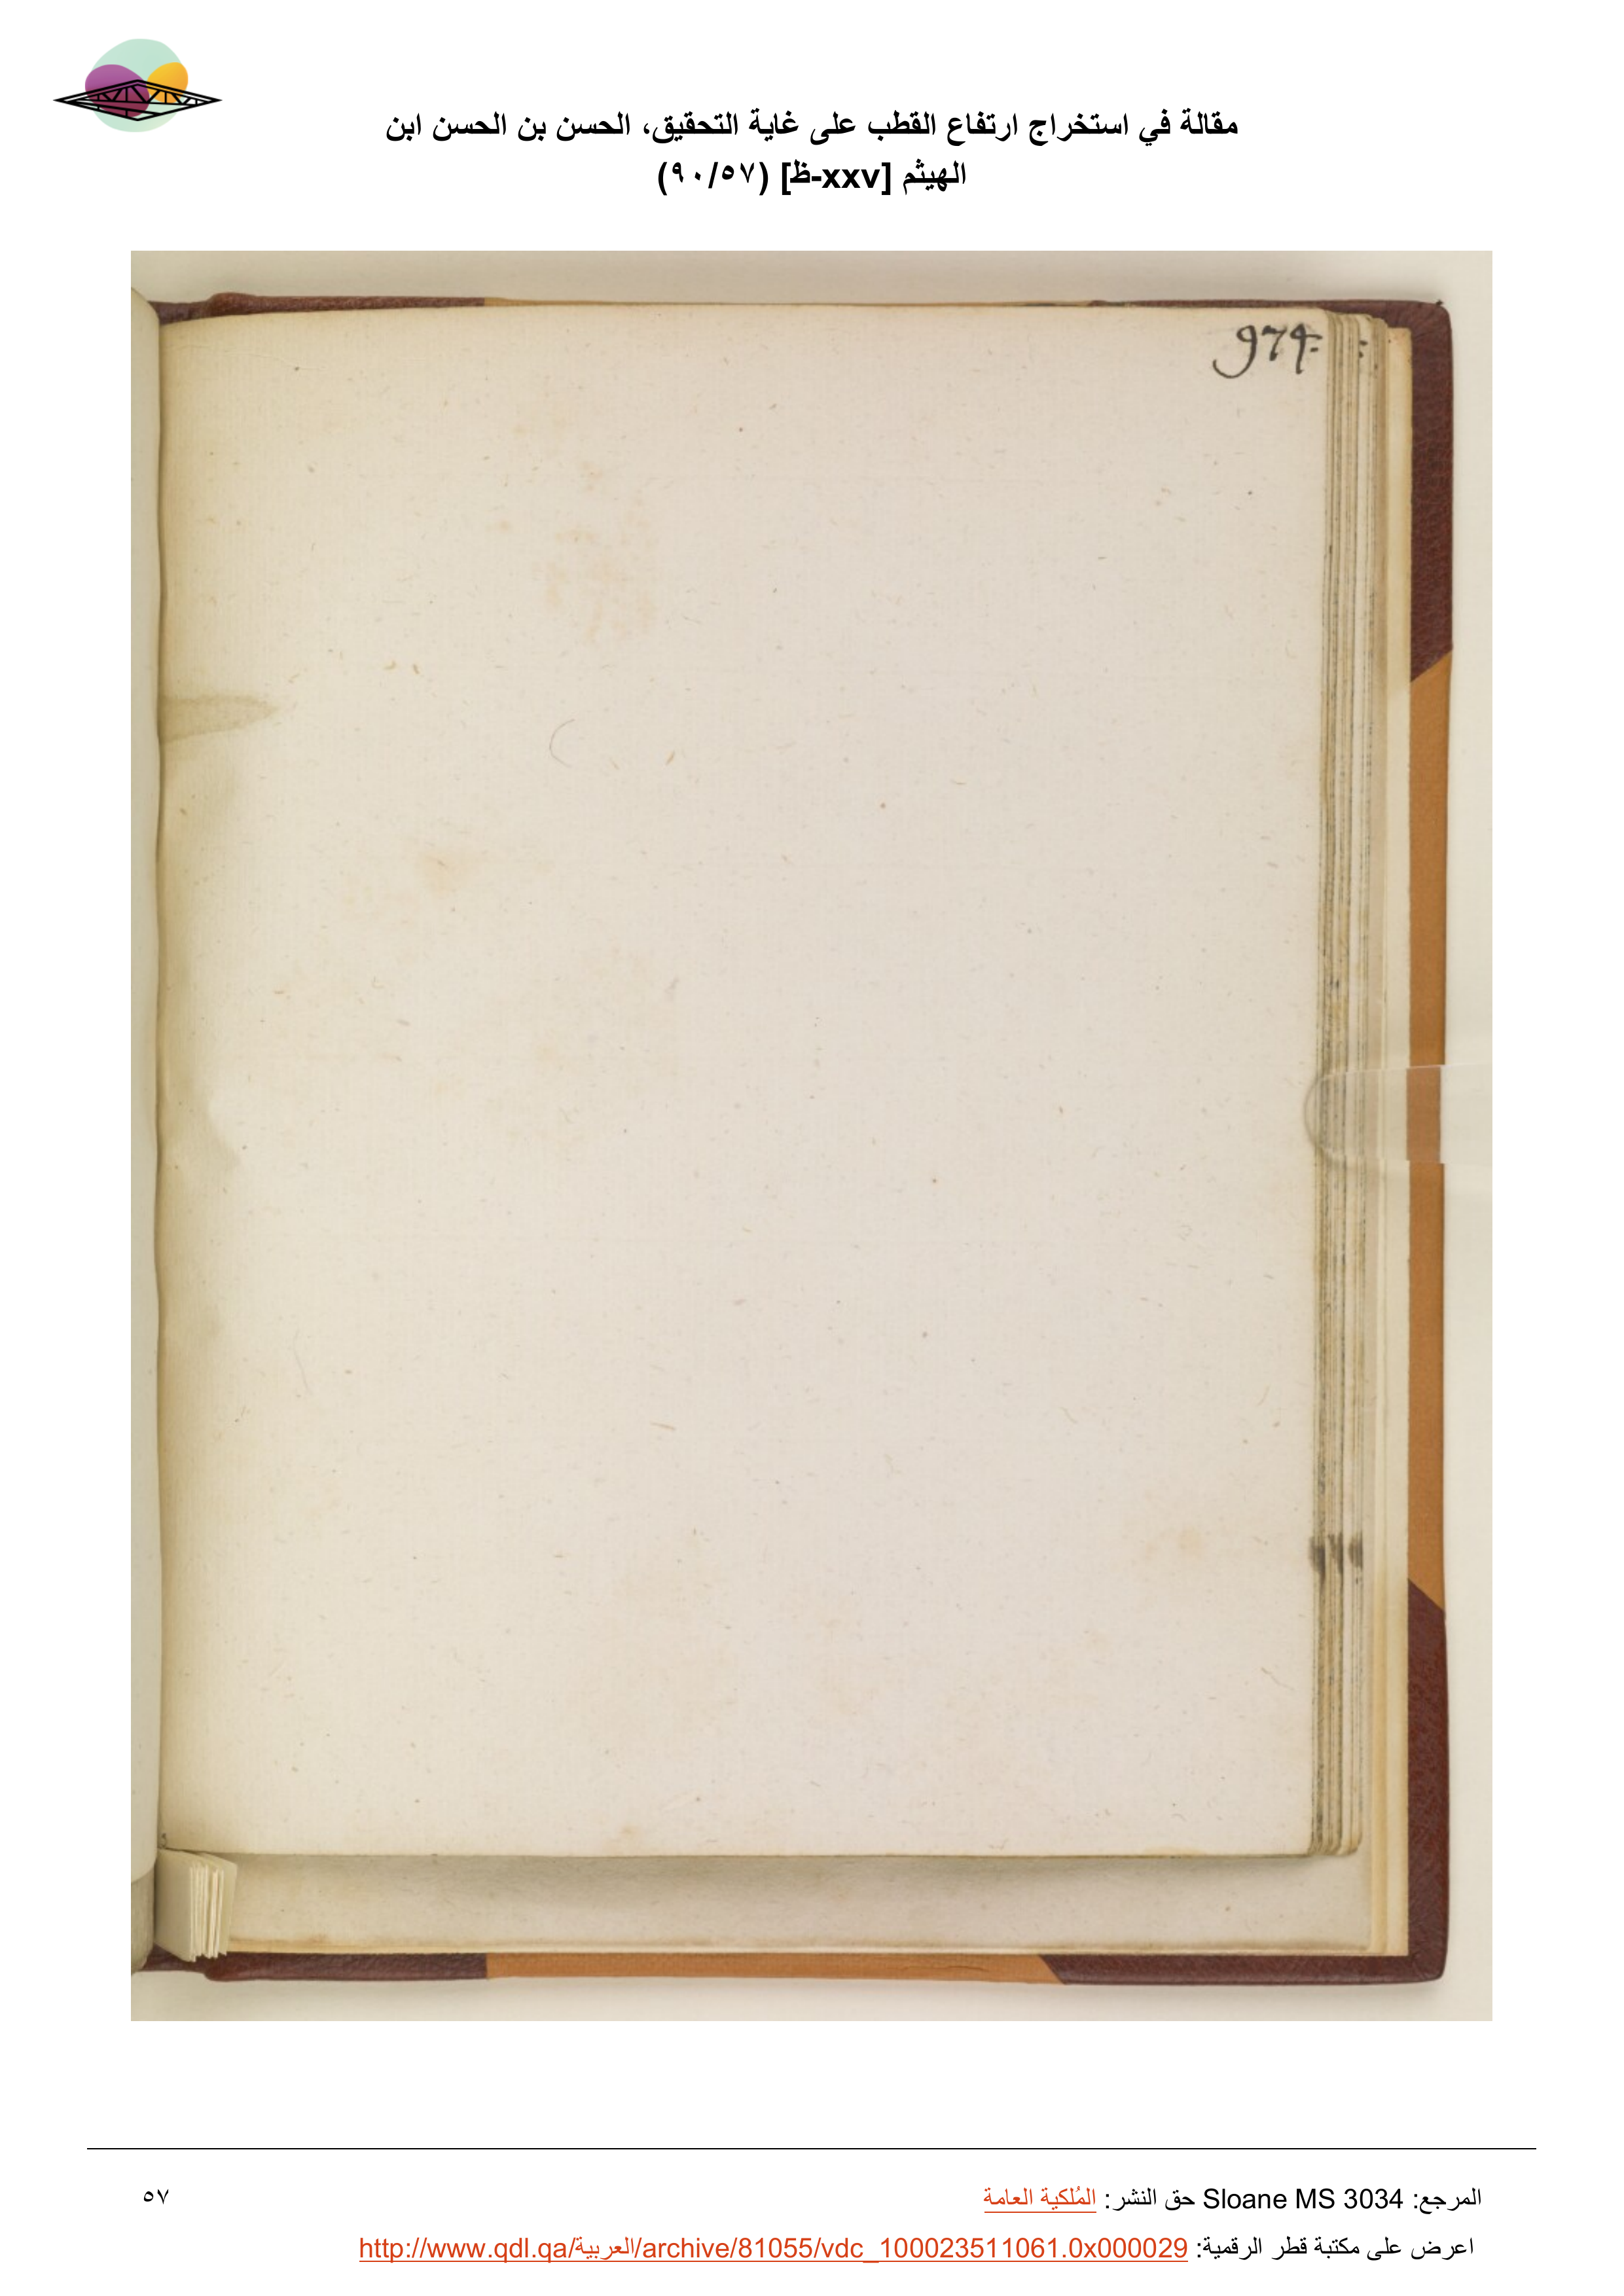 مقالة في استخراج ارتفاع القطب على غاية التحقيق، الحسن بن الحسن ابن
الهيثم [xxv-ظ] (٩٠/٥٧)
974:
المرجع: Sloane MS 3034 حق النشر: المُلكية العامة
٥٧
اعرض على مكتبة قطر الرقمية: http://www.qdl.qa/العربية/archive/81055/vdc_100023511061.0x000029